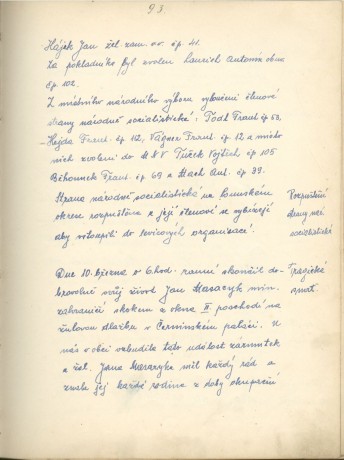 93.
Hájek Jan žel. zam. čp. 41.
Za pokladního byl zvolen Laurich Antonín
čp. 102.
Z místního národního výboru vyloučeni členové
strany národně socialistické: Pödl Frant. čp 63,
Hejda Frant. čp 112, Vágner Frant. čp. 12 a místo
nich zvoleni do MNV Tužek Vojtěch čp 105
Běhounek Frant. čp 69 a Mach Ant. čp 39.
Strana národně socialistická na Lounském
okrese rozpuštěna a její členové se vybízejí
aby vstoupili do levicových organisací.
Rozpuštění
strany nár.
socialistické
Dne 10. března o 6 hod. ranní skončil do-
brovolně svůj život Jan Masaryk min.
zahraničí skokem z okna II. poschodí na
žulovou dlažbu v Černínském paláci. U
nás v obci vzbudila tato událost zármutek
a žel. Jana Masaryka měl každý rád a
znala jej každá rodina z doby okupační
Tragická
smrt.